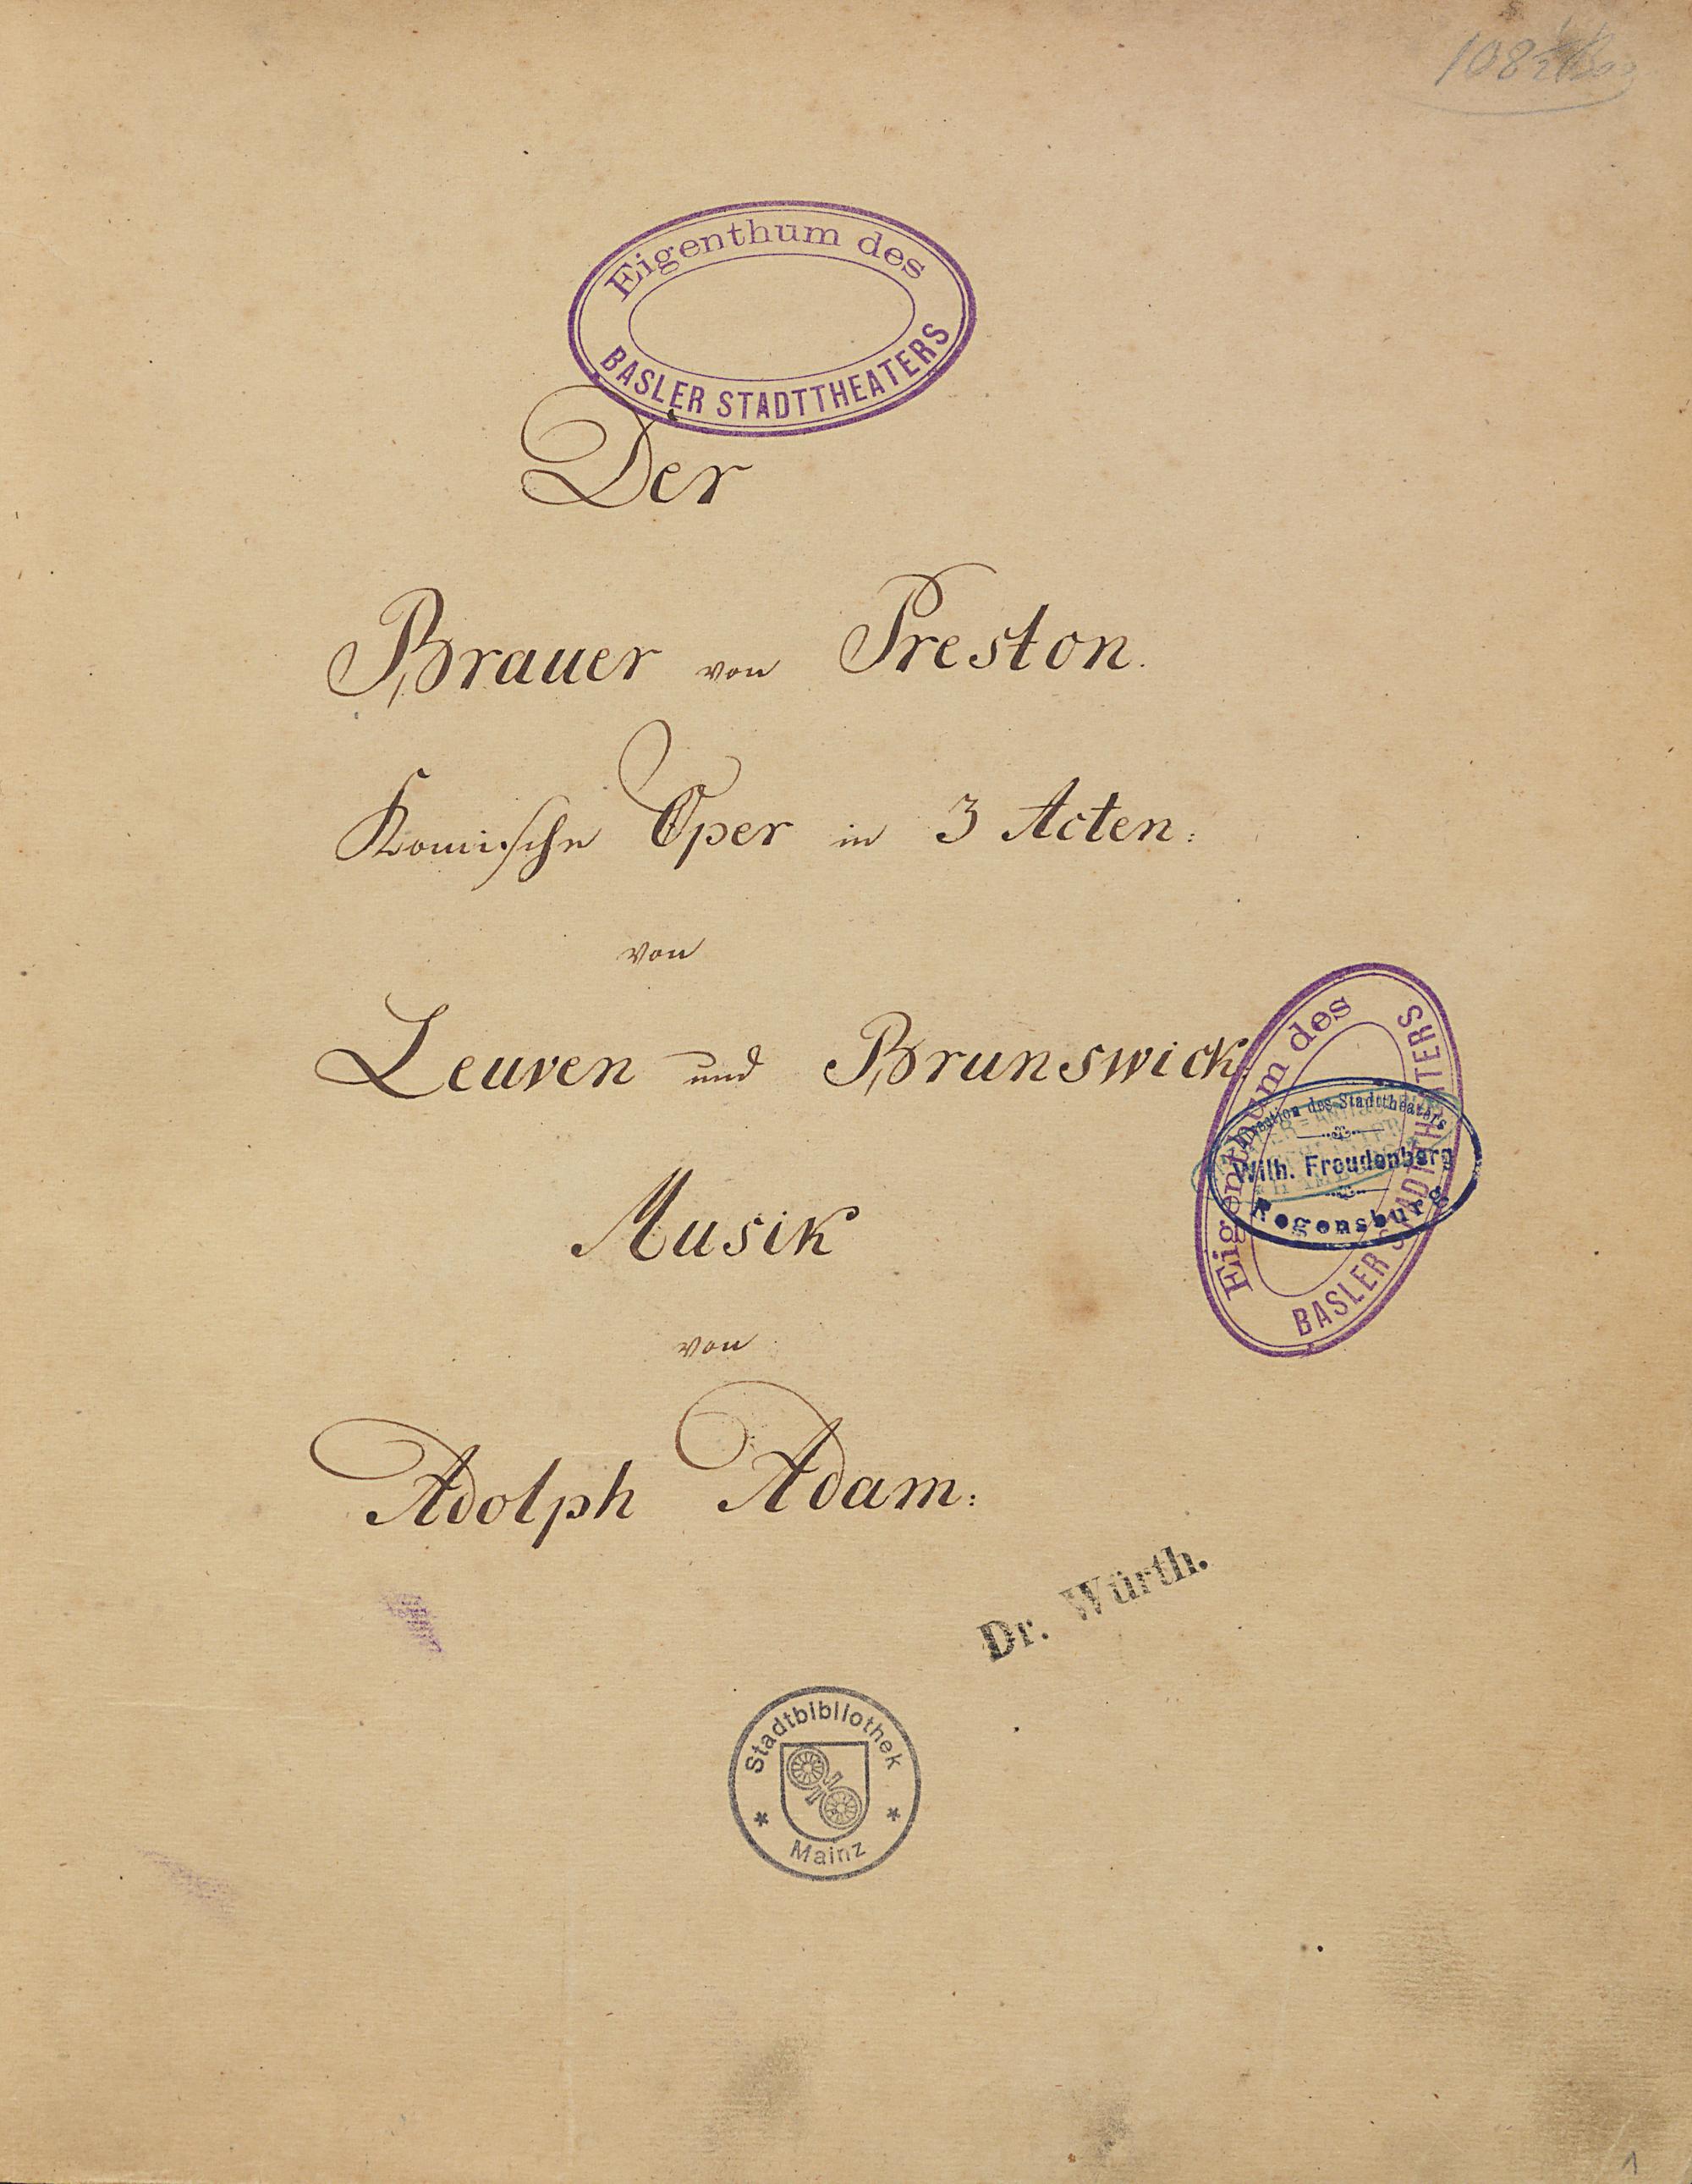 Eigenthum des
BASLER STADTTHEATERS
Der
Brauer von Preston.
Komische Oper in 3 Acten:
von
Leuven und Brunswick
Eigenthum des
BASLER STADTTHEATERS
Direction des Stadttheaters
Wilh. Freudenberg
Regensburg
Musik
von
Adolph Adam:
Dr. Würth.
Stadtbibliothek
* *
Mainz
1